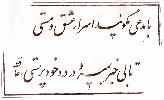 با مدعی مگویید اسرار عشق و مستی
تا بی خبر بمیرد در درد خودپرستی